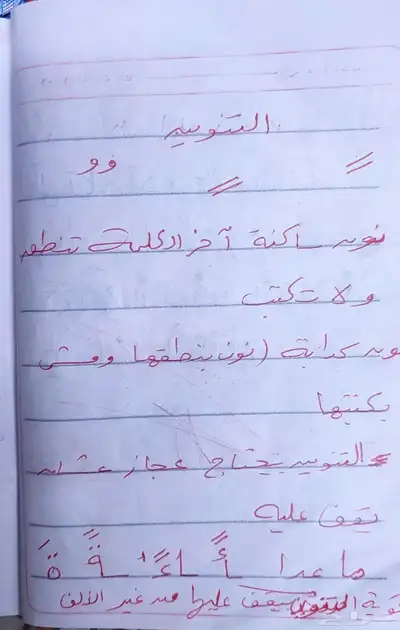 التنوين
ً ٍ ٌ
نون ساكنة آخر الكلمة تنطق
ولا تكتب
ون كدابة (نون بنطقها ومش
بكتبها
التنوين يحتاج عجاز عشان
يقف عليه
ما عدا أً اءً ةً ةً
التنوين يقف عليها من غير الألف